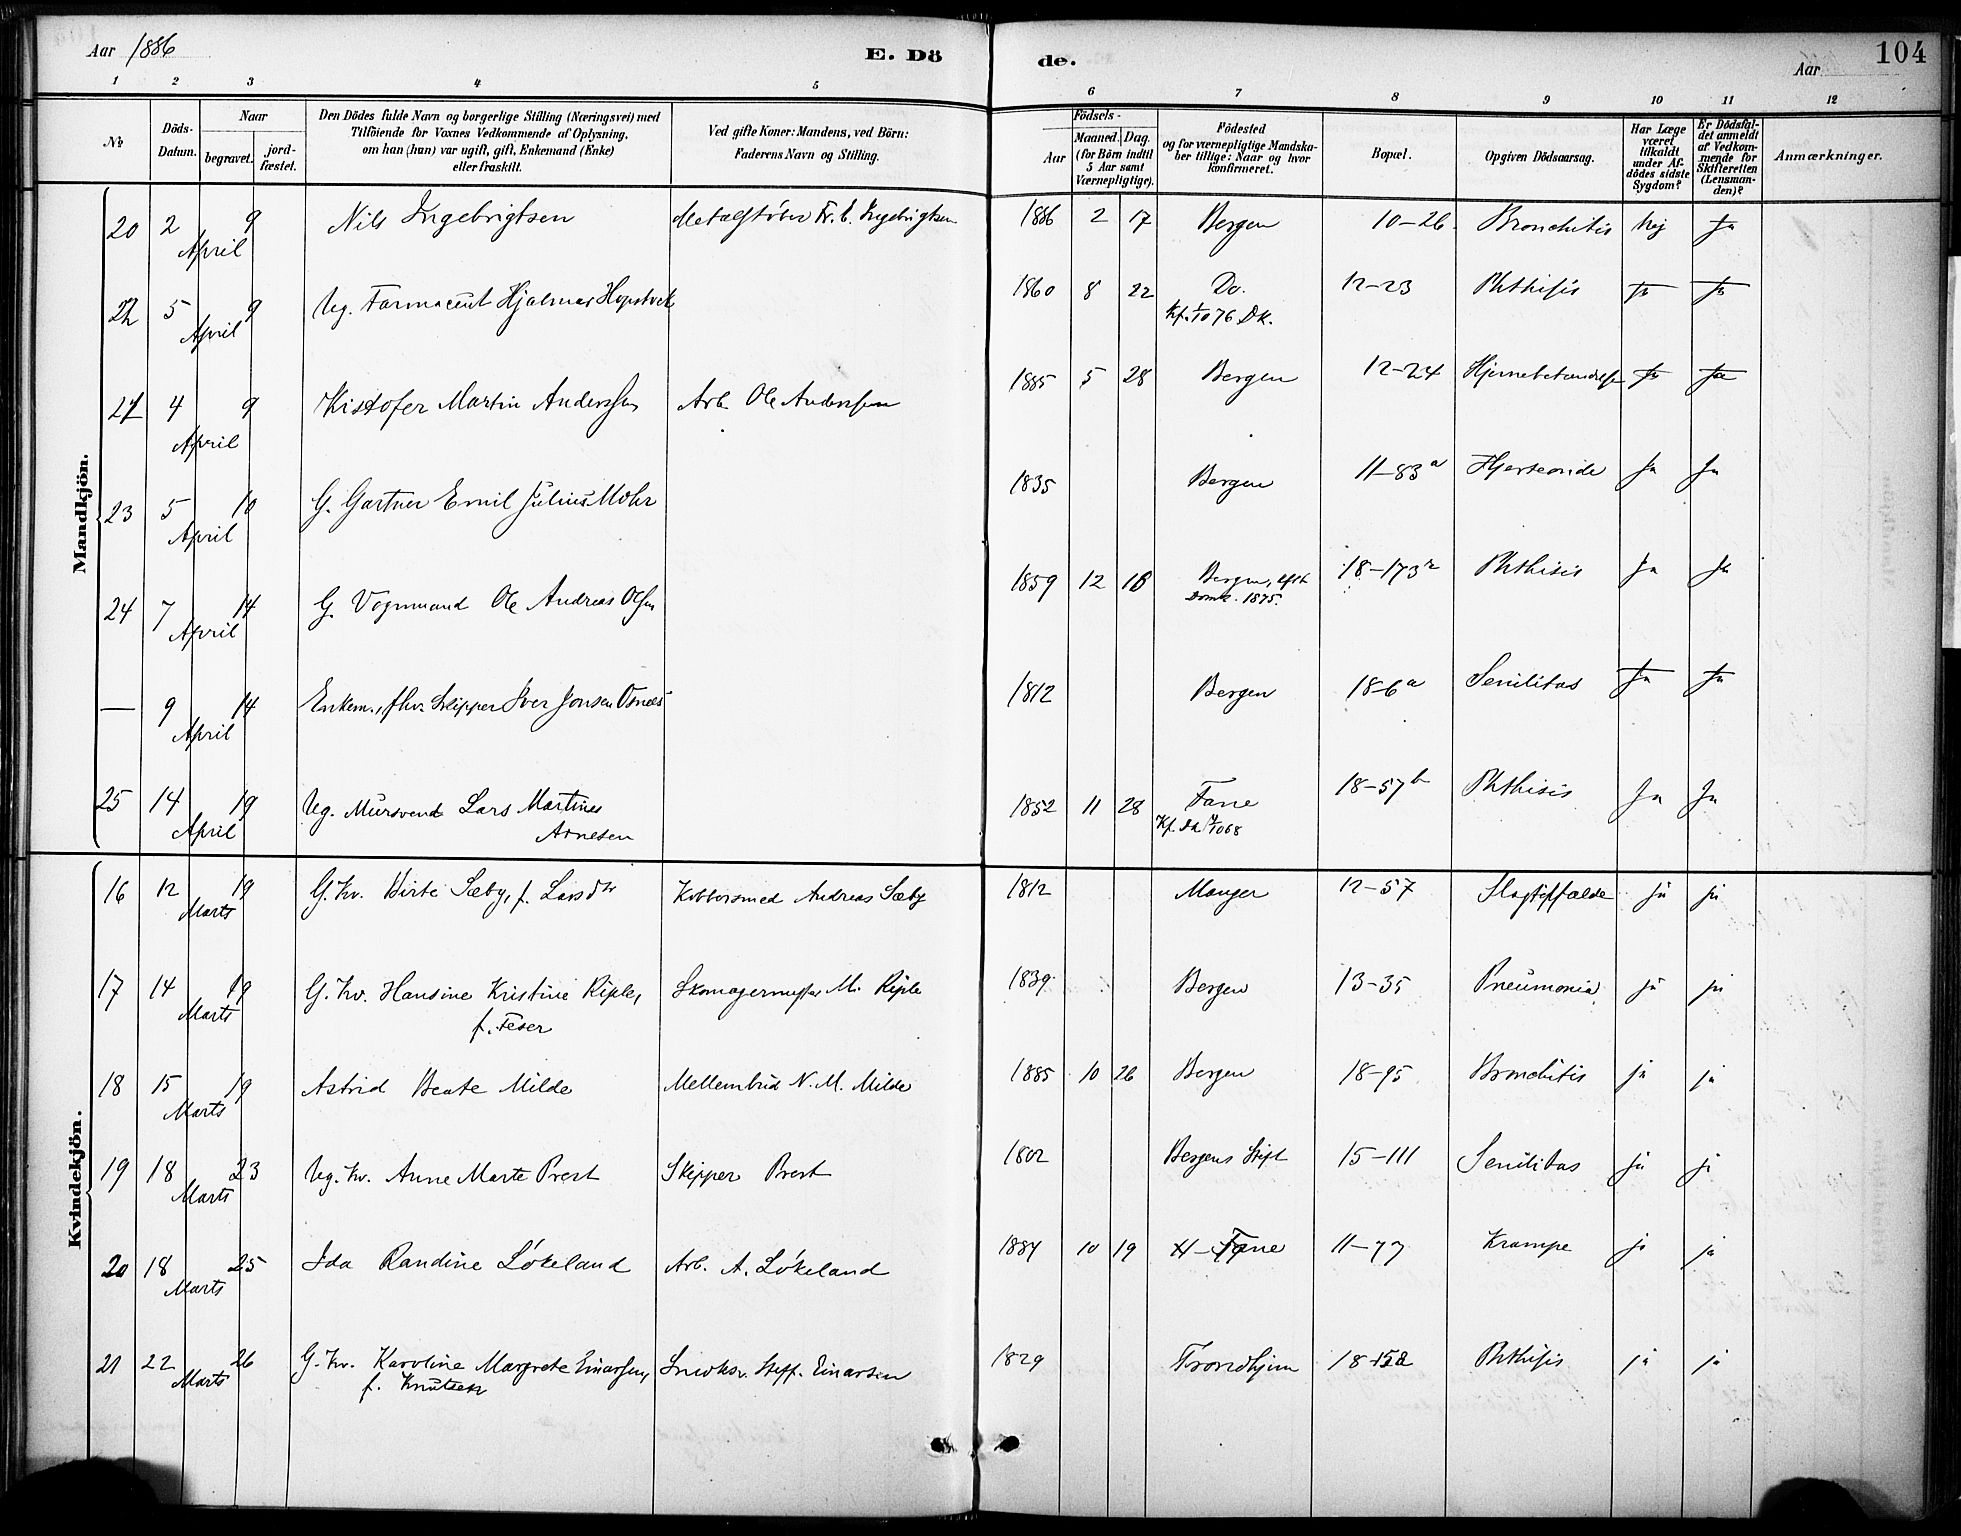 Aar 1886
E. Dö
de.
Aar
104
1 2 3 4 5 6 7 8 9 10 11 12
№
Döds-
Datum.
Naar
begravet.
jord-
fæstet.
Den Dödes fulde Navn og borgerlige Stilling (Næringsvei) med
Tilföiende for Voxnes Vedkommende af Oplysning,
om han (hun) var ugift, gift, Enkemand (Enke)
eller fraskilt.
Ved gifte Koner: Mandens, ved Börn:
Faderens Navn og Stilling.
Födsels-
Aar
Maaned. Dag.
(for Börn indtil
5 Aar samt
Værnepligtige).
Födested
og for værnepligtige Mandska-
ber tillige: Naar og hvor
konfirmeret.
Bopæl.
Opgiven Dödsaarsag.
Har Læge
været
tilkaldt
under Af-
dödes sidste
Sygdom?
Er Dödsfal-
det anmeldt
af Vedkom-
mende for
Skifteretten
(Lensman-
den)?
Anmærkninger.
Mandkjön.
20 2 April 9 Nils Ingebrigtsen Metalstöber Fr. E. Ingebrigtsen 1886 2 17 Bergen 10-26 Bronchitis Nej Ja
22 5 April 9 Ug. Farmaceut Hjalmar Hopstock 1860 8 22 Do. 12-23 Phthisis Ja Ja
Kf. 1/10 76 Dk.
21 4 April 9 Kistofer Martin Anderssen Arb. Ole Anderssen 1885 5 28 Bergen 12-24 Hjernebetændelse Ja Ja
23 5 April 10 G. Gartner Emil Julius Mohr 1835 Bergen 11-83a Hjerteonde Ja Ja
24 7 April 14 G. Vognmand Ole Andreas Olsen 1859 12 18 Bergen, 18-173 Phthisis Ja Ja
Domk. 1875.
— 9 April 14 Enkem., fhv. Skipper Iver Jonsen Osnes 1812 Bergen 18-6a Senilitas Ja Ja
25 14 April 19 Ug. Mursvend Lars Martines 1852 11 28 Fane 18-57b Phthisis Ja Ja
Arnesen
Kvindekjön.
16 12 Marts 19 G. Kv. Birte Sæby, f. Larsdtr Kobbersmed Andreas Sæby 1812 Manger 12-57 Slagtilfælde ja ja
17 14 Marts 19 G. Kv. Hansine Kristine Riple, Skomagermester M. Riple 1839 Bergen 13-35 Pneumonia ja ja
f. Feser
18 15 Marts 19 Astrid Beate Milde Mellembud N. M. Milde 1885 10 26 Bergen 18-95 Bronchitis ja ja
19 18 Marts 23 Ug. Kv. Anne Marte Prest Skipper Prest 1802 Bergens Stift 15-111 Senilitas ja ja
20 18 Marts 25 Ida Randine Lökeland Arb. A. Lökeland 1884 10 19 Fane 11-77 Krampe ja ja
21 22 Marts 26 G. Kv. Karoline Margrete Einarsen, Snedks. Steff. Einarsen 1829 Trondhjem 18-152 Phthisis ja ja
f. Knutsen